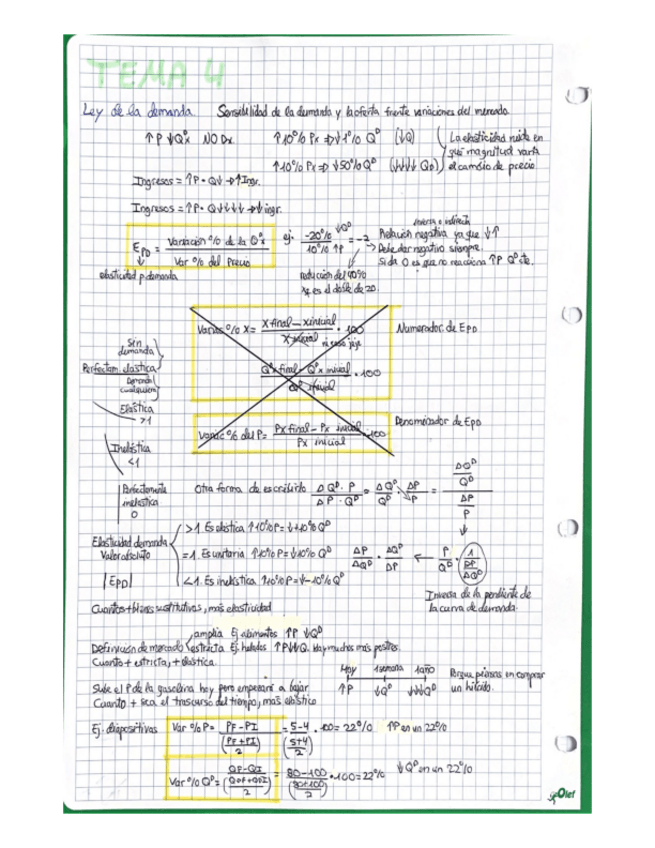 TEMA 4
Ley de la demanda Sensibilidad de la demanda y la oferta frente variaciones del mercado.
↑P ↓Qᴰx NO Dx. ↑10% Px ⇒ ↓1% Qᴰ (↓Q) La elasticidad mide en
qué magnitud varía
↑10% Px ⇒ ↓50% Qᴰ (↓↓↓↓ QD) el cambio de precio
Ingresos = ↑P · Q↓ → ↑Ingr.
Ingresos = ↑P · Q↓↓↓↓ → ↓ingr.
EPD = Variación % de la Qᴰx / Var % del Precio
ej. -20% ↓Qᴰ / 10% ↑P = -2
inversa o indirecta
Relación negativa ya que ↓↑
→ Debe dar negativo siempre.
Si da 0 es que no reacciona ↑P Qᴰ cte.
elasticidad p demanda
reducción del
es el doble de
Variac % X = X final - X inicial / X inicial · 100 Numerador de EPD
Qᴰx final - Qᴰx inicial / Qᴰ inicial · 100
Variac % del P = Px final - Px inicial / Px inicial · 100 Denominador de EPD
Sin
demanda
Perfectam. elástica
Demanda
cualquiera
Elástica
>1
Inelástica
<1
Perfectamente
inelástica
0
Otra forma de escribirlo ΔQᴰ · P / ΔP · Qᴰ = ΔQᴰ / Qᴰ · ΔP / P = ΔQᴰ / Qᴰ / ΔP / P
Elasticidad demanda
Valor absoluto
|EPD|
>1 Es elástica ↑10% P = ↓+10% Qᴰ
=1. Es unitaria ↑10% P = ↓10% Qᴰ
<1. Es inelástica ↑10% P = ↓-10% Qᴰ
ΔP / ΔQᴰ · ΔQᴰ / ΔP ← P / Qᴰ · 1 / ΔP / ΔQᴰ
Inversa de la pendiente de
la curva de demanda.
Cuantos + bienes sustitutivos, más elasticidad
Definición de mercado
amplia Ej alimentos ↑P ↓Qᴰ
estricta Ej. helados ↑P↓↓Q. Hay muchos más postres.
Cuanto + estricta, + elástica.
Hoy 1 semana 1 año
↑P ↓Qᴰ ↓↓↓Qᴰ
Porque piensas en comprar
un híbrido.
Sube el P de la gasolina hoy pero empezará a bajar
Cuanto + sea el trascurso del tiempo, más elástico
Ej. diapositivas Var % P = PF - PI / (PF + PI / 2) = 5-4 / (5+4 / 2) · 100 = 22% ↑P en un 22%
Var % Qᴰ = QF - QI / (QDF + QDI / 2) = 80-100 / (80+100 / 2) · 100 = 22% ↓Qᴰ en un 22%